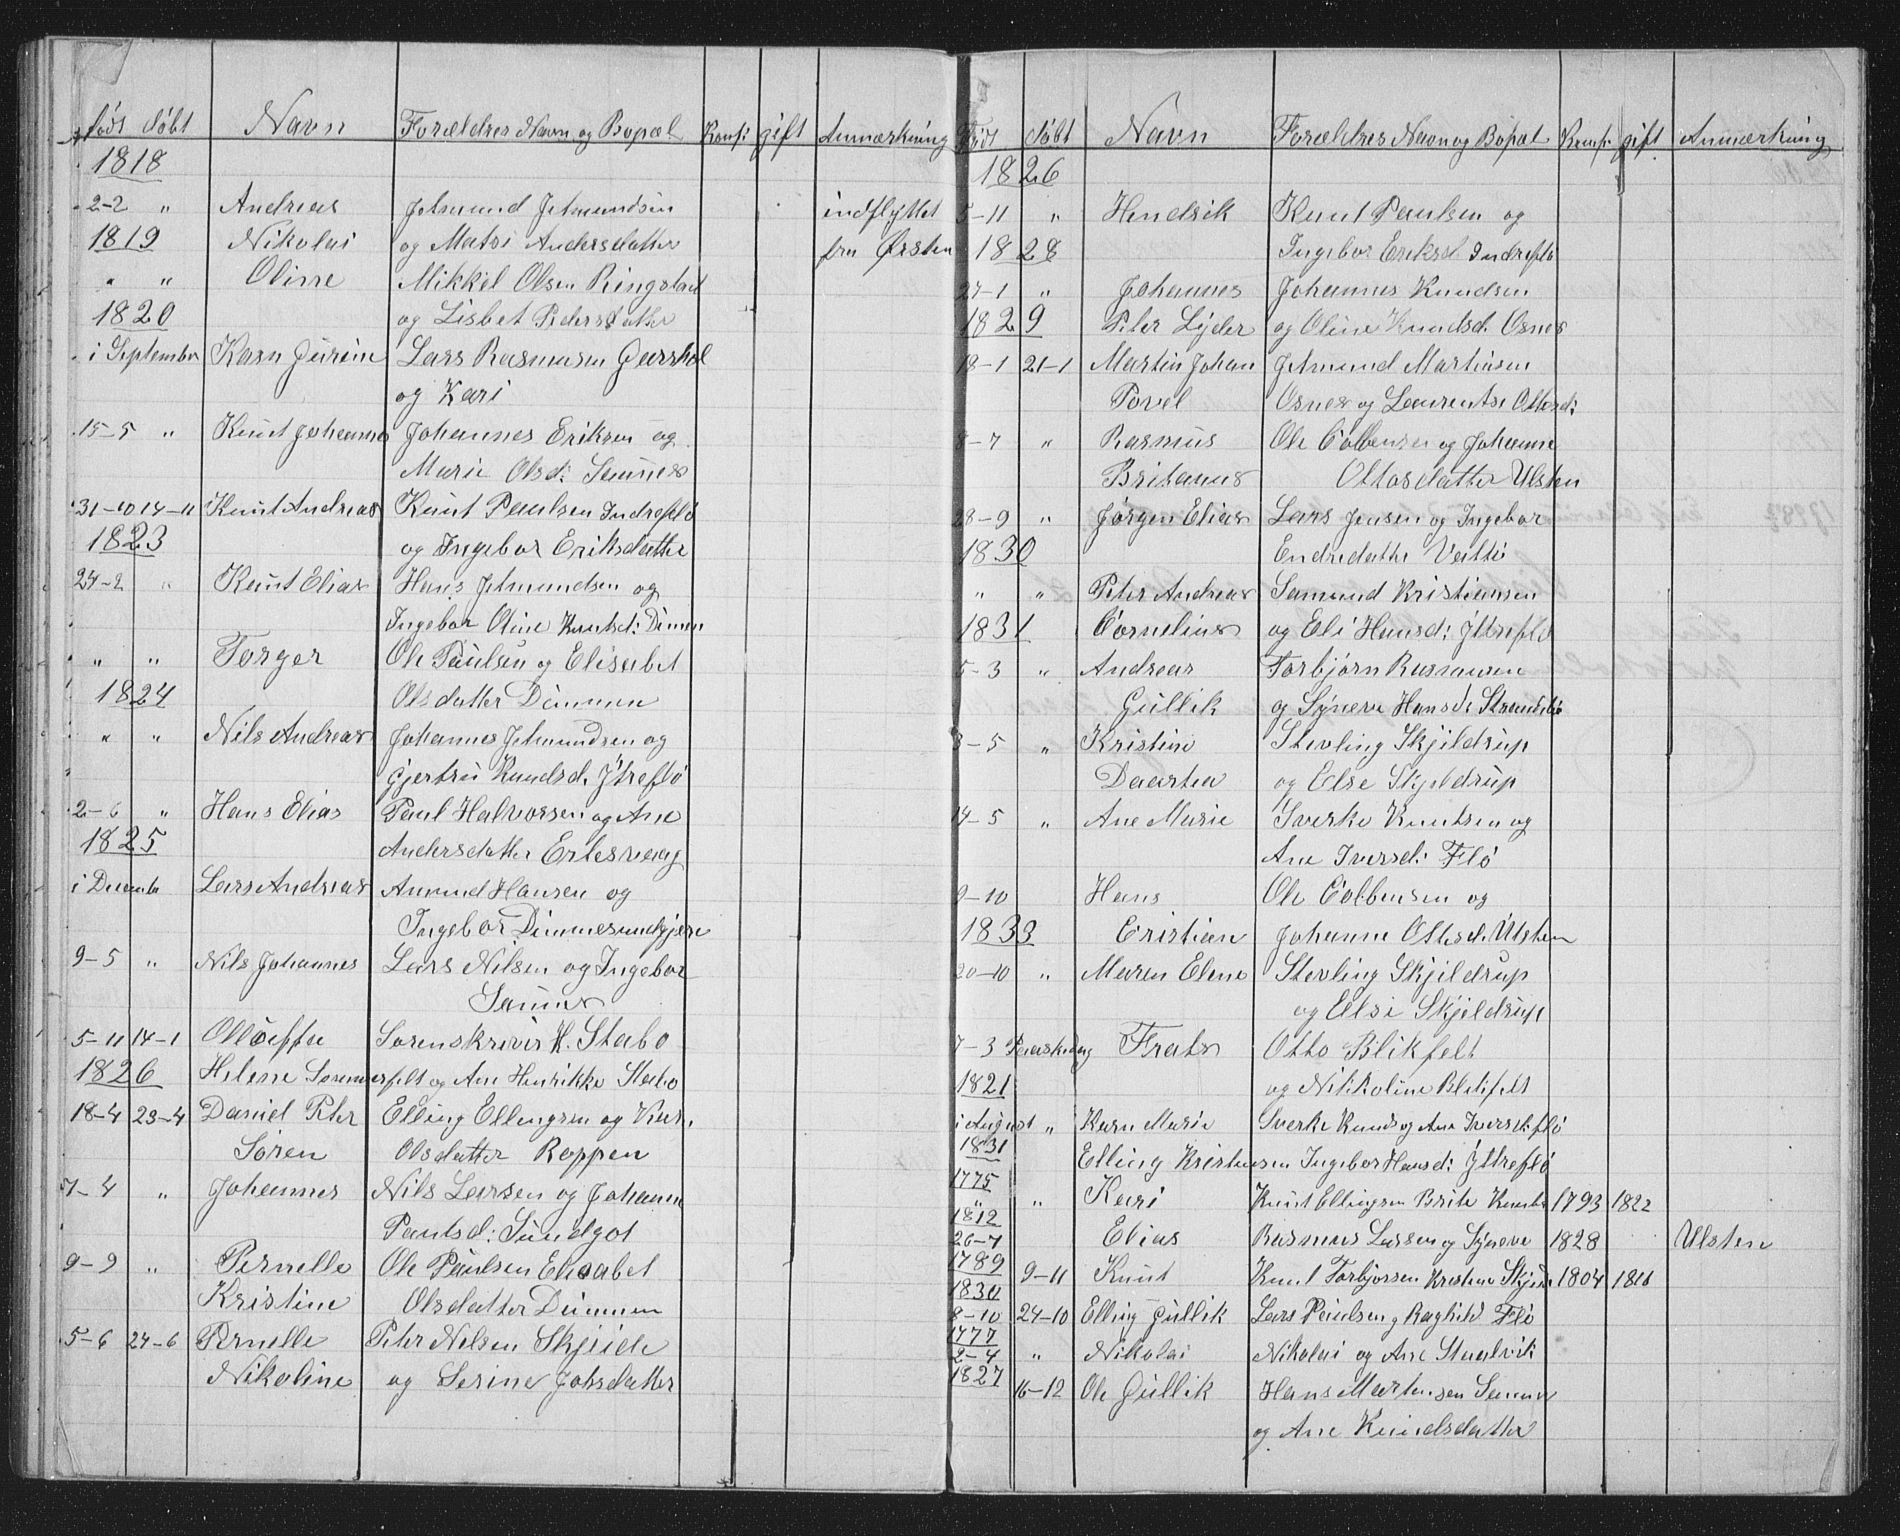 født døbt Navn Forældres Navn og Bopæl Konf: gift Anmærkning
1818
2-2 " Andreas Jetmund Jetmundsen indflyttet
1819 Nikolai og Matri Andersdatter fra Ørsten
" " Oline Mikkel Olsen Ringstad
1820 og Lisbet Pedersdatter
i September Karn Jurine Lars Rasmusen Garshol
og Kari
15-5 " Knut Johannes Johannes Eriksen og
Marie Olsd: Saunes
31-10 14-11 Knut Andreas Knut Paulsen Indreflø
1823 og Ingebor Eriksdatte
24-2 " Knut Elias Hans Jetmundsen og
Ingebor Oline Knutsd: Dimen
" " Torger Ole Paulsen og Elisabet
1824 Olsdatter Dimmen
" " Nils Andreas Johannes Jetmundsen og
Gjertru Knudsd. Ytreflø
2-6 " Hans Elias Paul Halvorsen og Ane
1825 Andersdatter Erlesvaag
i Decembe Lars Andreas Amund Hansen og
Ingebor Dimmesundgjerе
9-5 " Nils Johannes Lars Nilsen og Ingebor
Saunes
5-11 14-1 Olloeffa Sorenskriver H. Stabo
1826 Helene Sommerfelt og Ane Henrikke Stabo
18-4 23-4 Daniel Peter Elling Ellingsen og Kar.
Søren Olsdatter Roppen
7-4 " Johannes Nils Larsen og Johanne
Paulsd: Sundgot
9-9 " Pernelle Ole Paulsen Elisabet
Kristine Olsdatter Dimmen
5-6 24-6 Pernelle Peter Nelsen Skjeide
Nikoline og Serine Johsdatter
Født døbt Navn Forældres Navn og Bopæl Konf: gift Anmærkning
1826
5-11 " Hendrik Knut Paulsen og
1828 Ingebor Eriksd Indreflø
27-1 " Johannes Johannes Knudsen
1829 Peter Lyder og Oline Knudsd. Osnes
18-1 21-1 Martin Johan Jetmund Martinsen
Povel Osnes og Laurentse Ottesd:
8-7 " Rasmus Ole Colbensen og Johanne
Britanus Ottosdatter Ulsten
28-9 " Jørgen Elias Lars Jensen og Ingebor
1830 Endredatte Veitti
" " Peter Andreas Samund Kristiansen
1831 Cornelius og Eli Hansd: Ytreflø
5-3 " Andreas Torbjørn Rasmusen
Gullik og Syneve Hansd: Strandebø
3-5 " Kristine Sterling Skjeldrup
Daartea og Else Skjeldrup
14-5 " Ane Marie Sverke Knutsen og
Ane Iversd: Flø
9-10 Hans Ole Colbensen og
1833 Cristian Johanne Ottesd. Ulsten
20-10 " Maren Elene Sterling Skjeldrup
og Elsi Skjeldrup
7-3 Paaskedag Frats Otto Blikfelt
1821 og Nikkoline Blikfelt
i August " Karn Marie Sverke Knuds og Ane Iversd. Flø
1831 Elling Kristensen Ingebor Hansd: Ytreflø
1775
" " Kari Knut Ellingsen Brite Knuts 1793 1822
1812
26-7 Elias Rasmus Larsen og Syneve 1828 Ulsten
1789
9-11 Knut Knut Torbjørsen Kristine Skjei 1804 1816
1830
8-10 24-10 Elling Gullik Lars Paulsen og Raghild Flø
1777
2-4 " Nikolai Nikolai og Ane Staalvik
1827
16-12 Ole Gullik Hans Martensen Saunes
og Ane Knudsdatter